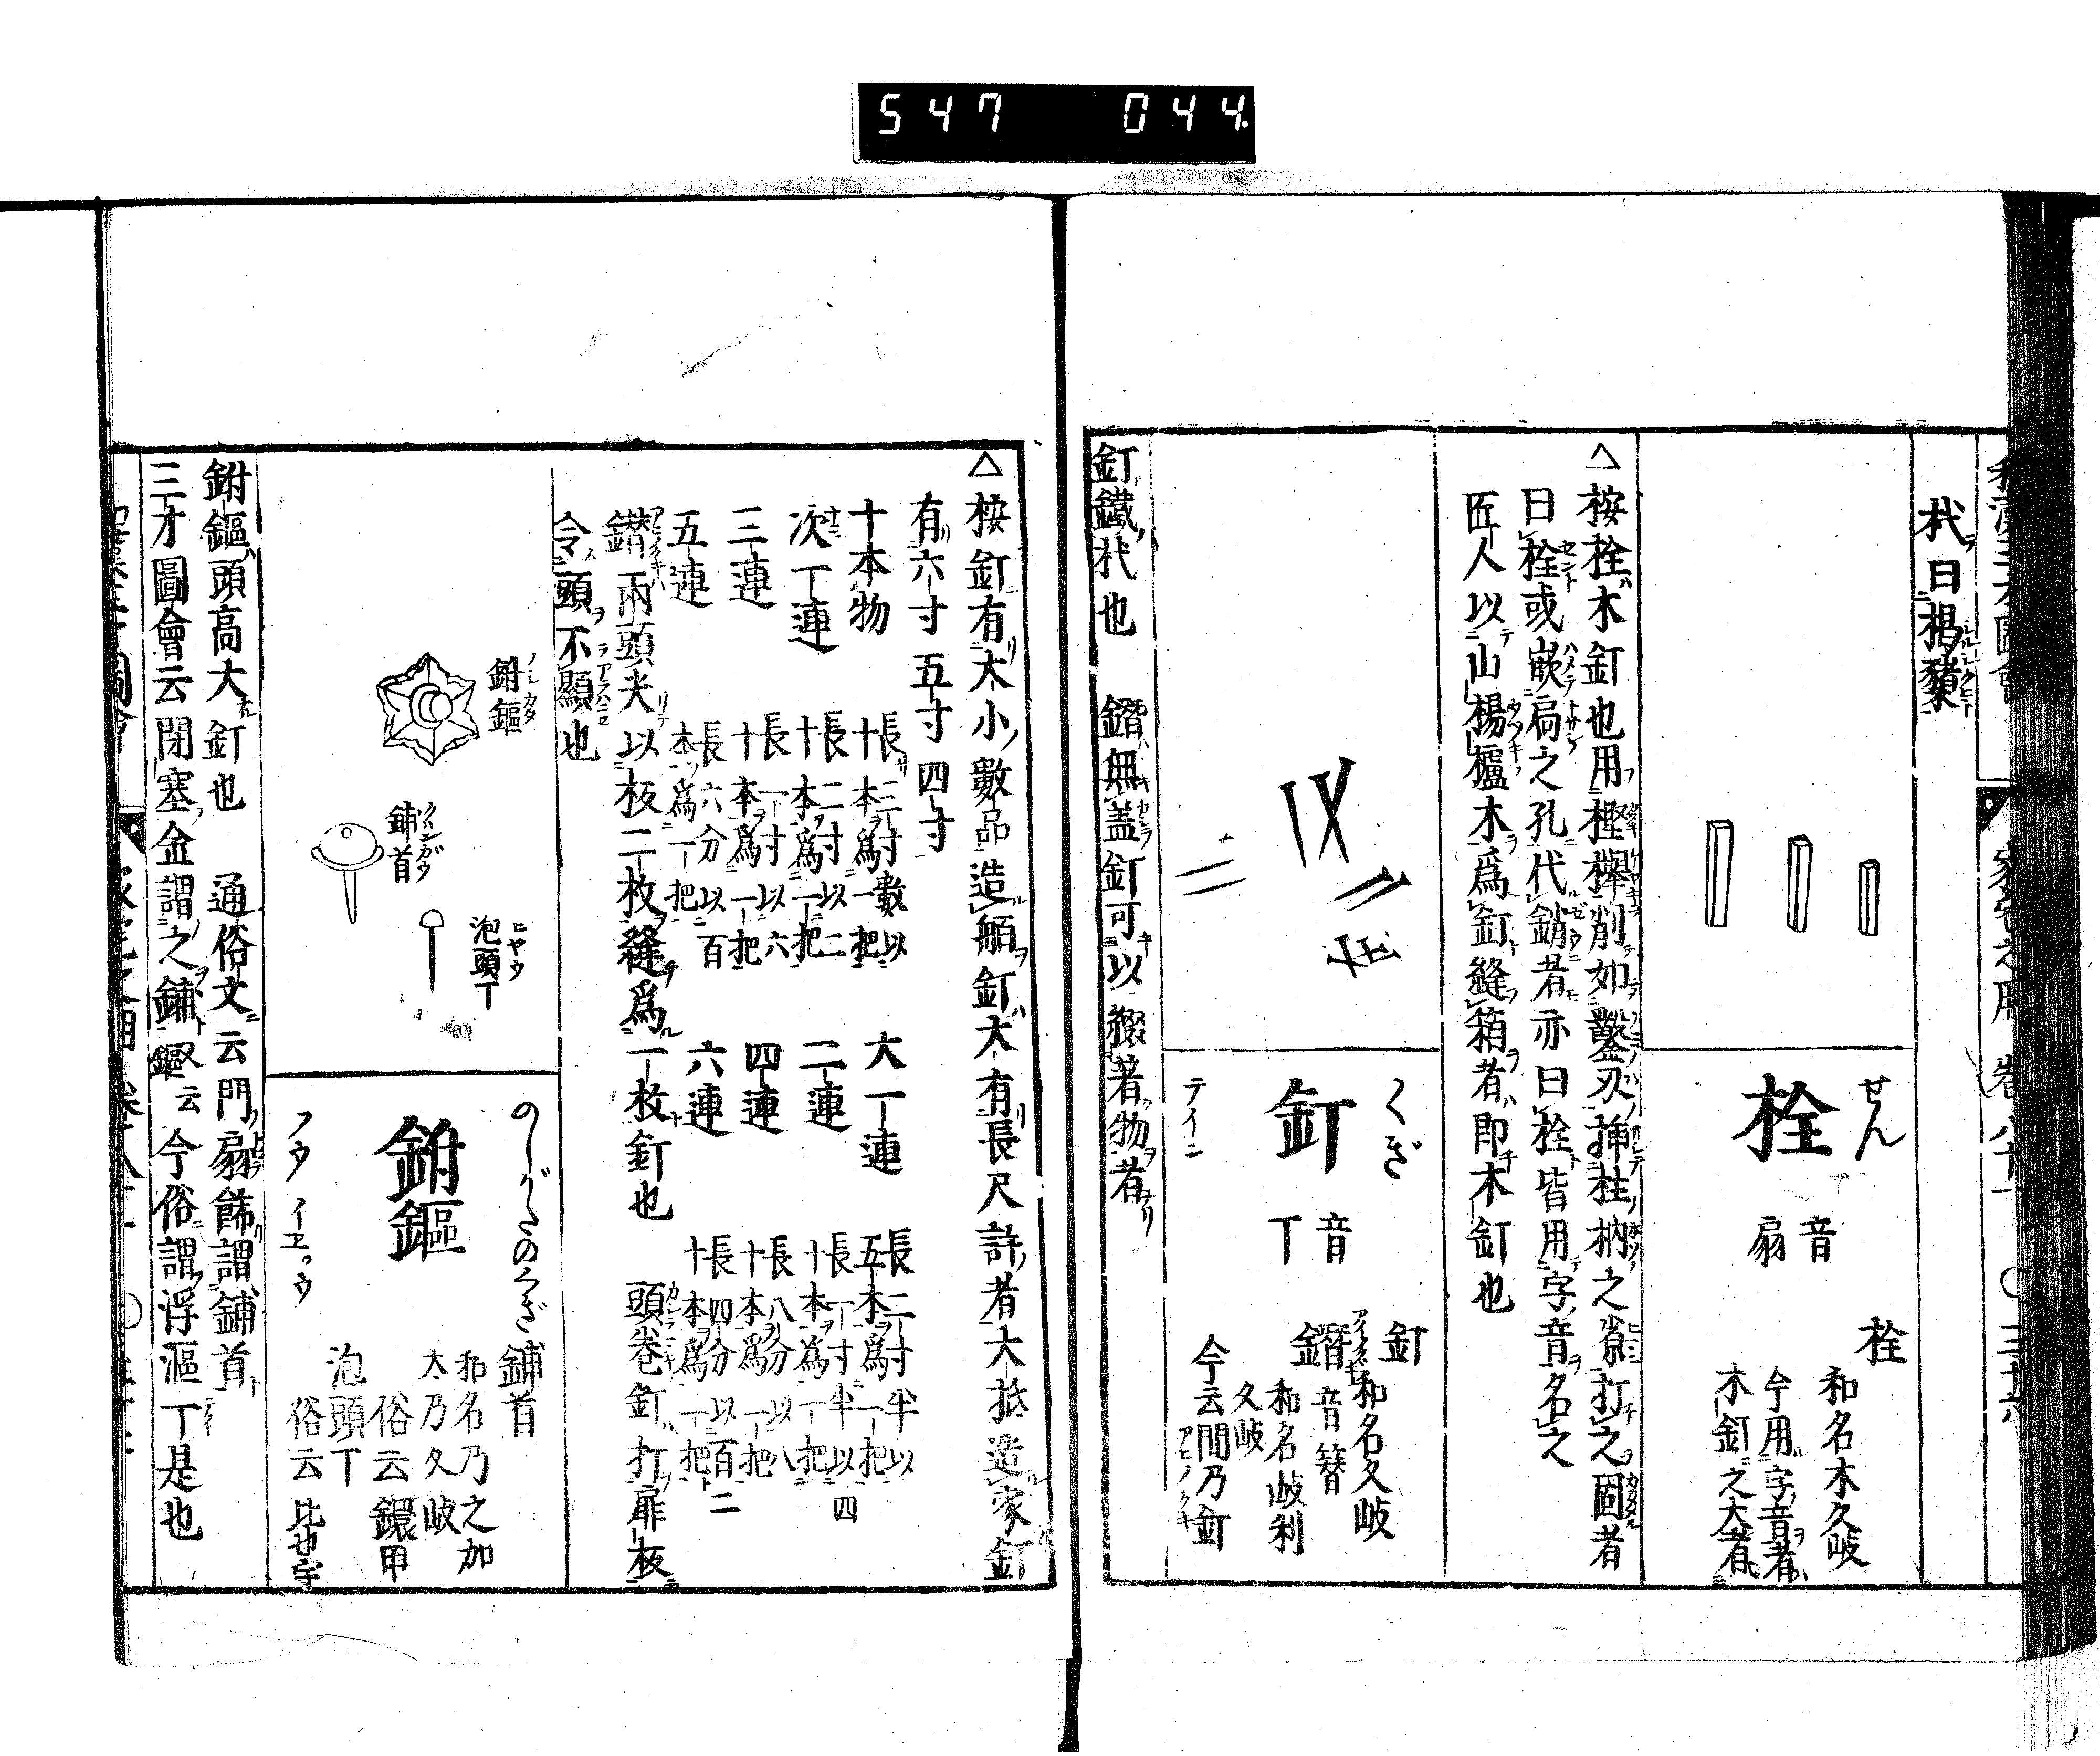 547 044.
杙曰楬櫫
せん
栓
音扇
栓
和名木久岐
今用字音者
木釘之大者
△按栓木釘也用樫櫸削如鑿刃挿柱枘之際打之固者
曰栓或嵌扃之孔代銷者亦曰栓皆用字音名之
匠人以山楊櫨木爲釘縫箱者即木釘也
くぎ
釘
音丁
テイン
釘
和名久岐
鐕
音簪
和名岐利
久岐
今云間乃釘
釘鐵杙也 鐕無蓋釘可以綴著物者
△按釘有大小數品造舶釘大有長尺許者大抵造家釘
有六寸五寸四寸
十本物 長三寸數以十本爲一把
大一連 長二寸半以五本爲一把
次一連 長二寸以二十本爲一把
二連 長一寸半以四十本爲一把
三連 長一寸以六十本爲一把
四連 長八分以八十本爲一把
五連 長六分以百本爲一把
六連 長四分以百二十本爲一把
鐕兩頭尖以板二枚縫爲一枚釘也 頭巻釘打扉板
令頭不顯也
鉜鏂
鋪首
泡頭丁
のしがたのくぎ
鉜鏂
フウ イエゥウ
鋪首
和名乃之加
太乃久岐
俗云鐶甲
泡頭丁
俗云比也宇
鉜鏂頭高大釘也 通俗文云門扇飾謂鋪首
三才圖會云閉塞金謂之鋪又云鏂今俗謂浮漚丁是也